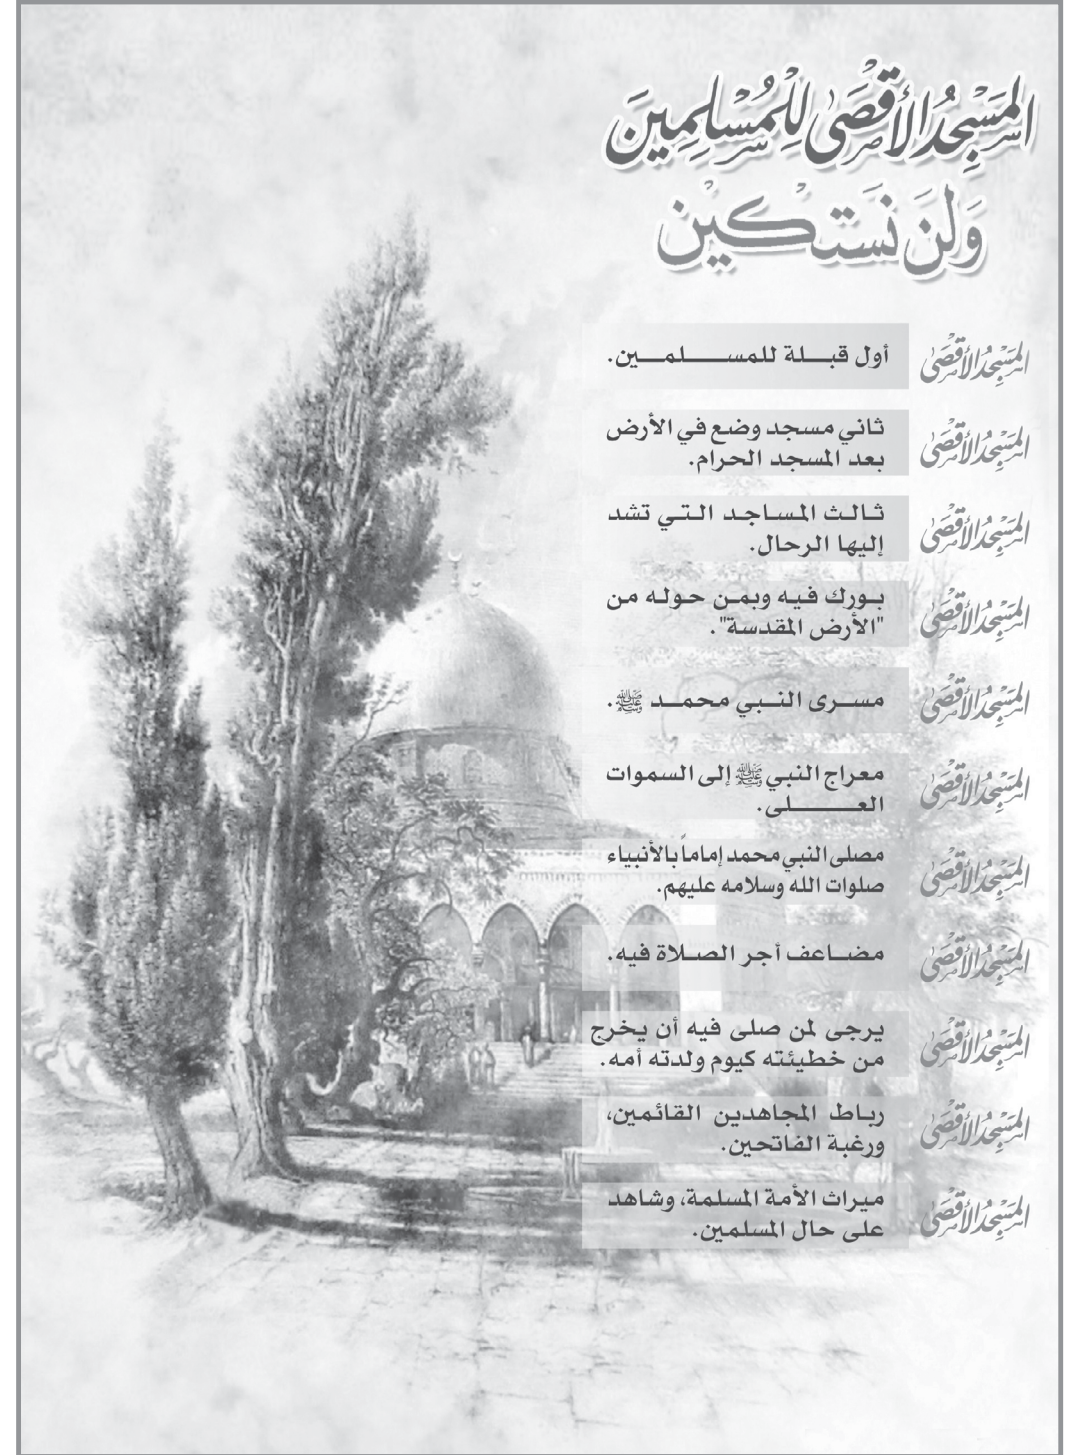 المَسْجِدُ الأَقْصَىٰ لِلْمُسْلِمِينَ
وَلَنْ نَسْتَكِيْن
المَسْجِدُ الأَقْصَىٰ أول قبـــلة للمســـــلمـــين.
المَسْجِدُ الأَقْصَىٰ ثاني مسجد وضع في الأرض
بعد المسجد الحرام.
المَسْجِدُ الأَقْصَىٰ ثـالـث المساجـد الـتـي تشد
إليها الرحال.
المَسْجِدُ الأَقْصَىٰ بـورك فـيـه وبمـن حـولـه مـن
"الأرض المقدسة".
المَسْجِدُ الأَقْصَىٰ مســرى النــبي محمــد ﷺ.
المَسْجِدُ الأَقْصَىٰ معراج النبي ﷺ إلى السموات
العـــــــلى.
المَسْجِدُ الأَقْصَىٰ مصلى النبي محمد إماماً بالأنبياء
صلوات الله وسلامه عليهم.
المَسْجِدُ الأَقْصَىٰ مضـاعف أجر الصـلاة فيه.
المَسْجِدُ الأَقْصَىٰ يرجى لمن صلى فيه أن يخرج
من خطيئته كيوم ولدته أمه.
المَسْجِدُ الأَقْصَىٰ رباط المجاهدين القائمين،
ورغبة الفاتحين.
المَسْجِدُ الأَقْصَىٰ ميراث الأمة المسلمة، وشاهد
على حال المسلمين.